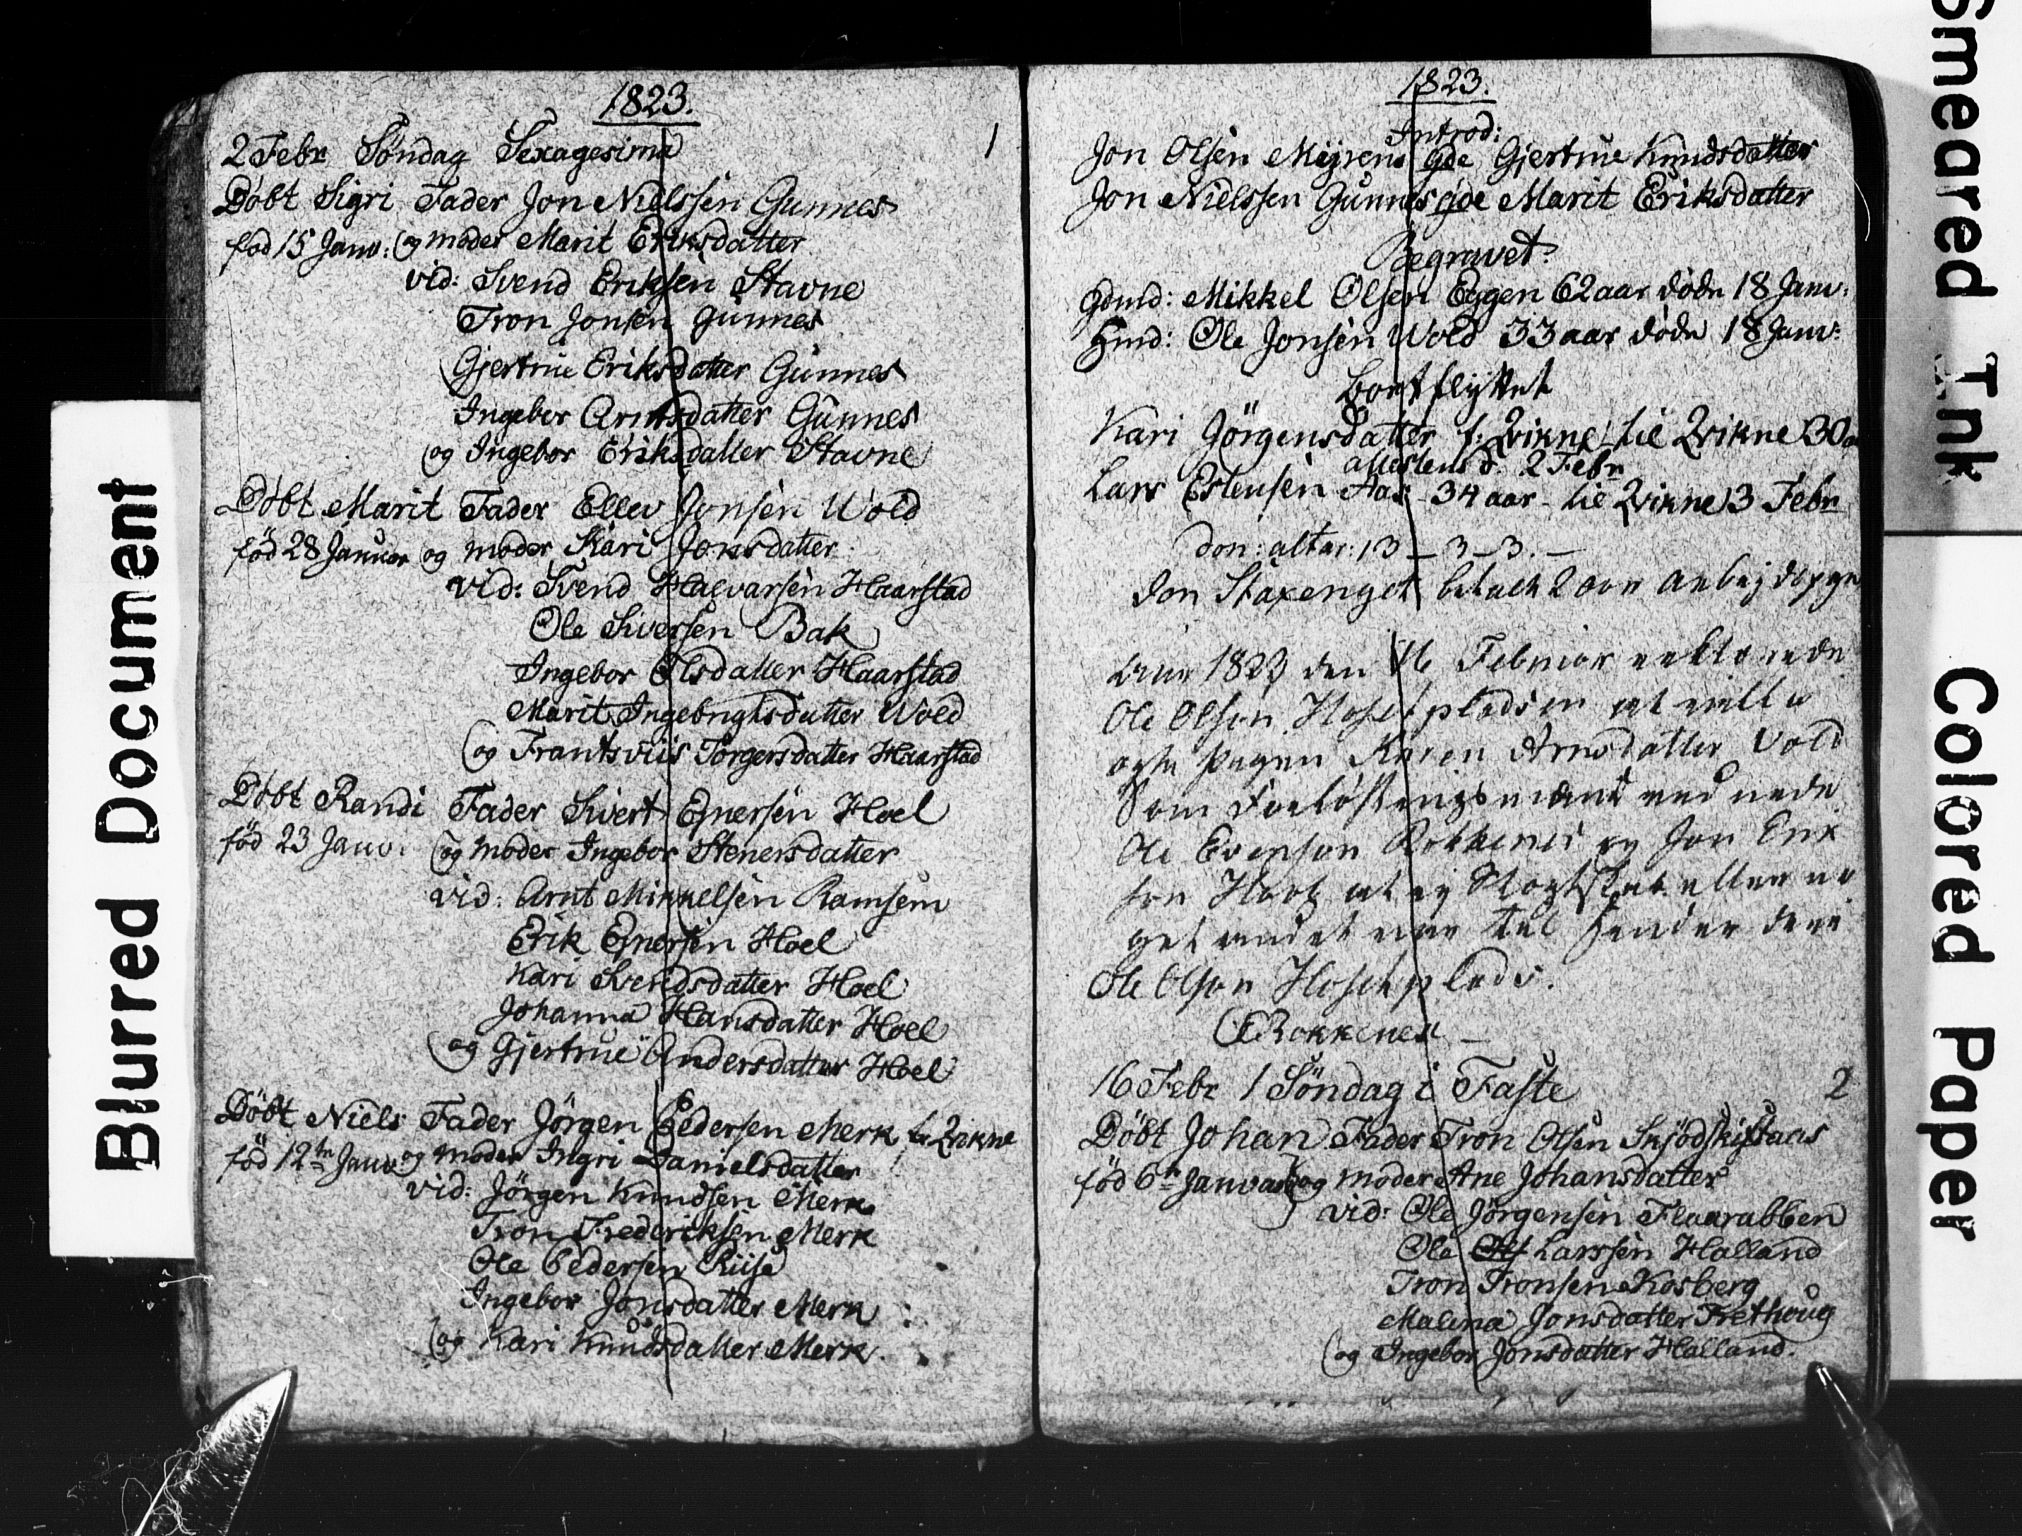 1823.
2 Febr Søndag Sexagesima 1
Døbt Sigri Fader Jon Nielssen Gunnes
fød 15 Janv: og moder Marit Eriksdatter
vid: Svend Eriksen Stavne
Tron Jonsen Gunnes
Gjertrue Eriksdatter Gunnes
Ingebor Arntsdatter Gunnes
og Ingebor Eriksdatter Stavne
Døbt Marit Fader Ellev Jonsen Wold
fød 28 Januar og moder Kari Jonsdatter
vid: Svend Halvarsen Haarstad
Ole Siversen Bak
Ingebor Olsdatter Haarstad
Marit Ingebrigtsdatter Wold
og Frantsviis Torgersdatter Haarstad
Døbt Randi Fader Sivert Enersen Hoel
fød 23 Janv: og moder Ingebor Stenersdatter
vid: Arnt Mikkelsen Ramsem
Erik Enersen Hoel
Kari Svendsdatter Hoel
Johanna Hansdatter Hoel
og Gjertrue Andersdatter Hoel
Døbt Niels Fader Jörgen Pedersen Merk fr Qvikne
fød 12te Janv og moder Ingri Danielsdatter
vid: Jörgen Knudsen Merk
Tron Frederiksen Merk
Ole Pedersen Riise
Ingebor Jonsdatter Merk
og Kari Knudsdatter Merk.
1823.
Introd:
Jon Olsen Myrens gde Gjertrue Knudsdatter
Jon Nielssen Gunnes gde Marit Eriksdatter
Begravet
Gdmd: Mikkel Olsen Eggen 62 aar døde 18 Janv:
Hmd: Ole Jonsen Wold 33 aar døde 18 Janv:
bortflyttet
Kari Jörgensdatter f: Qvikne til Qvikne 30 aa
attestens d. 2 Febr
Lars Estensen Aas - 34 aar - til Qvikne 3 Febr
don: altar: 13 - 3 - 3. -
Jon Staxenget
1823 den 16 Februar
Ole Olsen
Pigen Karen Arnsdatter Vold
Som Forlöfningsmænd
Ole Evensen Rokkenes og Jon Erik
sen
Ole Olsen
E Rokkenes
16 Febr 1 Söndag i Faste 2
Døbt Johan Fader Tron Olsen Skjödskiftaas
fød 6te Janvar og moder Ane Johansdatter
vid: Ole Jörgensen Flaarabben
Ole Larssen Halland
Tron Tronsen Kosberg
Malena Jonsdatter Frethoug
og Ingebor Jonsdatter Halland.
Blurred Document
Smeared Ink
Colored Paper